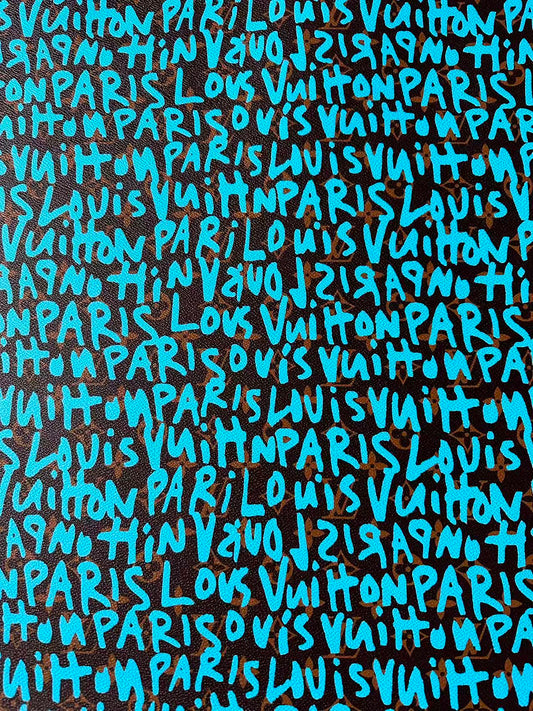 VUiTTON PARiLOUiS VUiTTON P
ONPARIS LOUS VUiTTONPARIS L
UiTTONPARISOViS VUiTTONPA
VUiTTONPARISLOUiSVUiTTON
S LOUiS VUiTTONPARISLOUiS V
VUiTTON PARiLOUiS VUiTTON P
ONPARIS LOUS VUiTTONPARIS
TTONPARISOViS VUiTTONPA
VUiTTONPARISLOUiSVUiTTON
S LOUiS VUiTTONPARISLOUiS V
VUiTTON PARiLOUiS VUiTTON P
NPARIS LOUS VUiTTONPARIS
TTONPARISOViS VUiTTONPA
VUiTTONPARISLOUiSVUiTTON